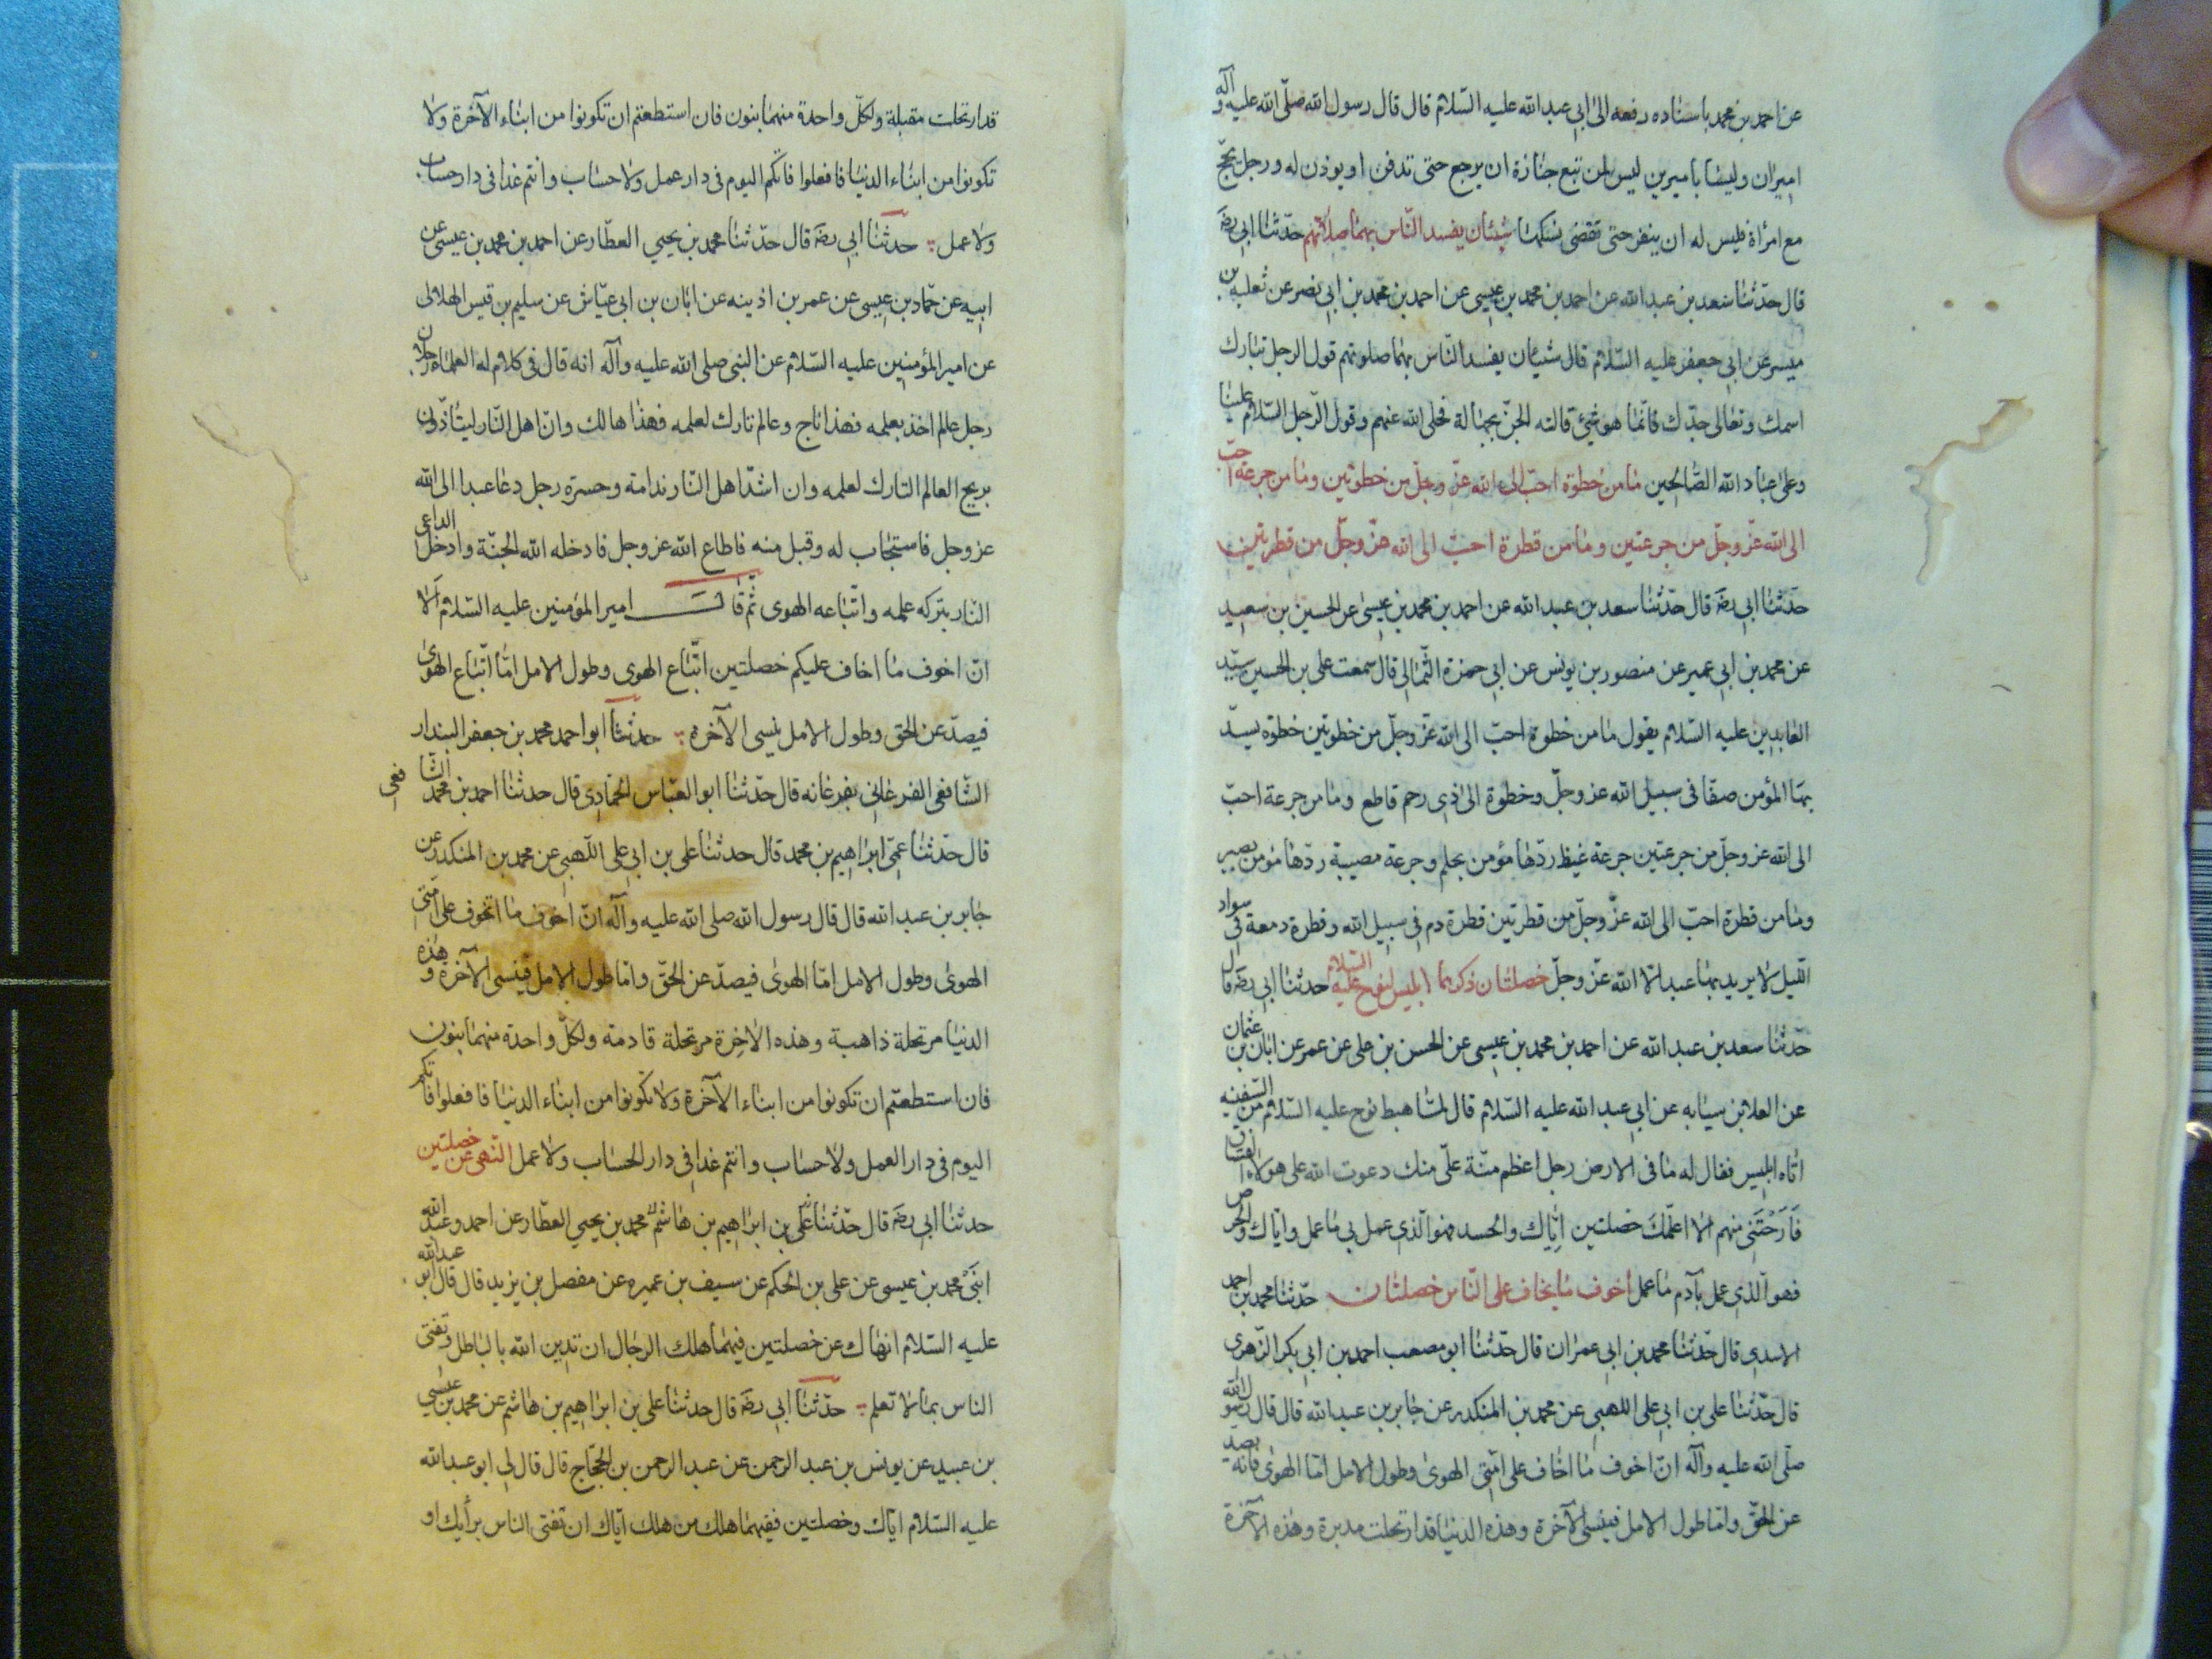 عن احمد بن محمد باسناده رفعه الى ابي عبد الله عليه السّلام قال قال رسول الله صلّى الله عليه وآله
اميران وليسا باميرين ليس لمن تبع جنازة ان يرجع حتى تدفن او يوذن له ورجل يحجّ
مع امرأة فليس له ان ينفر حتى تقضى نسكها شيئان يفسد النّاس بهما صلاتهم حدّثنا ابي رضه
قال حدّثنا سعد بن عبد الله عن احمد بن محمد بن عيسى عن احمد بن محمد بن ابي نصر عن ثعلبه بن
ميسر عن ابي جعفر عليه السّلام قال شيئان يفسد النّاس بهما صلوتهم قول الرجل تبارك
اسمك وتعالى جدّك فانّما هو شئ قالته الجنّ بجهالة فحكى الله عنهم وقول الرّجل السّلام علينا
وعلى عباد الله الصّالحين ما من خطوة احبّ الى الله عزّ وجلّ من خطوتين وما من جرعة احبّ
الى الله عزّ وجلّ من جرعتين وما من قطرة احبّ الى الله عزّ وجلّ من قطرتين
حدّثنا ابي رضه قال حدّثنا سعد بن عبد الله عن احمد بن محمد بن عيسى عن الحسين بن سعيد
عن محمد بن ابي عمير عن منصور بن يونس عن ابي حمزة الثّمالي قال سمعت على بن الحسين سيّد
العابدين عليه السّلام يقول ما من خطوة احبّ الى الله عزّ وجلّ من خطوتين خطوة يسدّ
بها المؤمن صفّا فى سبيل الله عز وجلّ وخطوة الى ذى رحم قاطع وما من جرعة احبّ
الى الله عز وجلّ من جرعتين جرعة غيظ ردّها مؤمن بحلم وجرعة مصيبة ردّها مؤمن بصبر
وما من قطرة احبّ الى الله عزّ وجلّ من قطرتين قطرة دم في سبيل الله وقطرة دمعة في سواد
اللّيل لا يريد بها عبد الّا الله عزّ وجلّ خصلتان ذكرهما ابليس لنوح عليه السّلام حدثنا ابي رضه قال
حدّثنا سعد بن عبد الله عن احمد بن محمد بن عيسى عن الحسن بن على عن عمر عن ابان بن عثمان
عن العلا بن سيابه عن ابي عبد الله عليه السّلام قال لمّا هبط نوح عليه السّلام من السّفينه
اتاه ابليس فقال له ما فى الارض رجل اعظم منّة علىّ منك دعوت الله على هولاء الفسّاق
فَاَرَحْتَنِى منهم الا اعلّمكَ خصلتين اِيّاك والحسد فهو الّذى عمل بى ما عمل وايّاك والحرص
فهو الّذى عمل بآدم ما عمل اخوف ما يخاف على النّاس خصلتان حدّثنا محمد بن احمد
الاسدى قال حدّثنا محمد بن ابي عمران قال حدّثنا ابو مصعب احمد بن ابي بكر الزّهرى
قال حدّثنا على بن ابي على اللهبى عن محمد بن المنكدر عن جابر بن عبد الله قال قال رسول الله
صلّى الله عليه وآله انّ اخوف ما اخاف على امّتى الهوى وطول الامل امّا الهوى فانّه يصدّ
عن الحقّ وامّا طول الامل فينسى الآخرة وهذه الدنيا قد ارتحلت مدبرة وهذه الآخرة
قد ارتحلت مقبلة ولكلّ واحدة منهما بنون فان استطعتم ان تكونوا من ابناء الآخرة ولا
تكونوا من ابناء الدنيا فافعلوا فانّكم اليوم فى دار عمل ولا حساب وانتم غدا فى دار حساب
ولا عمل حدثنا ابي رضه قال حدّثنا محمد بن يحيى العطّار عن احمد بن محمد بن عيسى عن
ابيه عن حمّاد بن عيسى عن عمر بن اذينه عن ابان بن ابى عيّاش عن سليم بن قيس الهلالى
عن امير المؤمنين عليه السّلام عن النبى صلى الله عليه وآله انه قال فى كلام له العلماء رجلان
رجل عالم اخذ بعلمه فهذا ناج وعالم تارك لعلمه فهذا هالك وانّ اهل النّار ليتأذّون
بريح العالم التارك لعلمه وان اشدّ اهل النّار ندامة وحسرة رجل دعا عبدا الى الله
عز وجل فاستجاب له وقبل منه فاطاع الله عز وجل فادخله الله الجنّة وادخل الداعى
النّار بتركه علمه واتّباعه الهوى ثمّ قال امير المؤمنين عليه السّلام اَلَا
انّ اخوف ما اخاف عليكم خصلتين اتّباع الهوى وطول الامل امّا اتّباع الهوى
فيصدّ عن الحق وطول الامل ينسى الآخرة حدّثنا ابو احمد محمد بن جعفر البندار
الشّافعى الفرغانى بفرغانه قال حدّثنا ابو العبّاس الحمّادى قال حدثنا احمد بن محمد الشّافعى
قال حدّثنا عمّى ابراهيم بن محمد قال حدثنا على بن ابي على اللّهبى عن محمد بن المنكدر عن
جابر بن عبد الله قال قال رسول الله صلى الله عليه وآله انّ اخوف ما اتخوف على امّتى
الهوى وطول الامل امّا الهوى فيصدّ عن الحقّ وامّا طول الامل فينسى الآخرة وهذه
الدنيا مرتحلة ذاهبة وهذه الآخرة مرتحلة قادمة ولكلّ واحدة منهما بنون
فان استطعتم ان تكونوا من ابناء الآخرة ولا تكونوا من ابناء الدنيا فافعلوا فانكم
اليوم فى دار العمل ولا حساب وانتم غدا فى دار الحساب ولا عمل النّهى عن خصلتين
حدثنا ابي رضه قال حدّثنا على بن ابراهيم بن هاشم محمد بن يحيى العطّار عن احمد وعبد الله
ابنَىْ محمد بن عيسى عن على بن الحكم عن سيف بن عميره عن مفضل بن يزيد قال قال ابو عبد الله
عليه السّلام انهاك عن خصلتين فيهما هلك الرجال ان تدين الله بالباطل وتفتى
الناس بما لا تعلم حدّثنا ابي رضه قال حدثنا على بن ابراهيم بن هاشم عن محمد بن عيسى
بن عبيد عن يونس بن عبد الرحمن عن عبد الرحمن بن الحجّاج قال قال لى ابو عبد الله
عليه السّلام ايّاك وخصلتين ففيهما هلك من هلك ايّاك ان تفتى الناس برأيك او